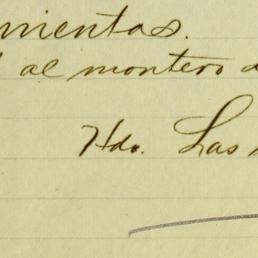 mientas.
al montero
Hdo. Las